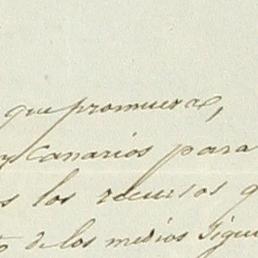 que promueva,
y Canarios para
os los recursos q
de los medios sigue